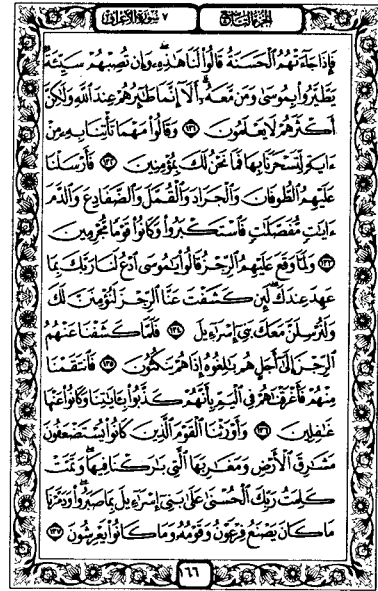 الجزء التاسع ٧ سورة الأعراف
فَإِذَا جَآءَتْهُمُ ٱلْحَسَنَةُ قَالُوا۟ لَنَا هَـٰذِهِۦ وَإِن تُصِبْهُمْ سَيِّئَةٌ
يَطَّيَّرُوا۟ بِمُوسَىٰ وَمَن مَّعَهُۥٓ أَلَآ إِنَّمَا طَـٰٓئِرُهُمْ عِندَ ٱللَّهِ وَلَـٰكِنَّ
أَكْثَرَهُمْ لَا يَعْلَمُونَ ١٣١ وَقَالُوا۟ مَهْمَا تَأْتِنَا بِهِۦ مِنْ
ءَايَةٍ لِّتَسْحَرَنَا بِهَا فَمَا نَحْنُ لَكَ بِمُؤْمِنِينَ ١٣٢ فَأَرْسَلْنَا
عَلَيْهِمُ ٱلطُّوفَانَ وَٱلْجَرَادَ وَٱلْقُمَّلَ وَٱلضَّفَادِعَ وَٱلدَّمَ
ءَايَـٰتٍ مُّفَصَّلَـٰتٍ فَٱسْتَكْبَرُوا۟ وَكَانُوا۟ قَوْمًا مُّجْرِمِينَ
١٣٣ وَلَمَّا وَقَعَ عَلَيْهِمُ ٱلرِّجْزُ قَالُوا۟ يَـٰمُوسَى ٱدْعُ لَنَا رَبَّكَ بِمَا
عَهِدَ عِندَكَ لَئِن كَشَفْتَ عَنَّا ٱلرِّجْزَ لَنُؤْمِنَنَّ لَكَ
وَلَنُرْسِلَنَّ مَعَكَ بَنِىٓ إِسْرَٰٓءِيلَ ١٣٤ فَلَمَّا كَشَفْنَا عَنْهُمُ
ٱلرِّجْزَ إِلَىٰٓ أَجَلٍ هُم بَـٰلِغُوهُ إِذَا هُمْ يَنكُثُونَ ١٣٥ فَٱنتَقَمْنَا
مِنْهُمْ فَأَغْرَقْنَـٰهُمْ فِى ٱلْيَمِّ بِأَنَّهُمْ كَذَّبُوا۟ بِـَٔايَـٰتِنَا وَكَانُوا۟ عَنْهَا
غَـٰفِلِينَ ١٣٦ وَأَوْرَثْنَا ٱلْقَوْمَ ٱلَّذِينَ كَانُوا۟ يُسْتَضْعَفُونَ
مَشَـٰرِقَ ٱلْأَرْضِ وَمَغَـٰرِبَهَا ٱلَّتِى بَـٰرَكْنَا فِيهَا وَتَمَّتْ
كَلِمَتُ رَبِّكَ ٱلْحُسْنَىٰ عَلَىٰ بَنِىٓ إِسْرَٰٓءِيلَ بِمَا صَبَرُوا۟ وَدَمَّرْنَا
مَا كَانَ يَصْنَعُ فِرْعَوْنُ وَقَوْمُهُۥ وَمَا كَانُوا۟ يَعْرِشُونَ ١٣٧
١٦٦